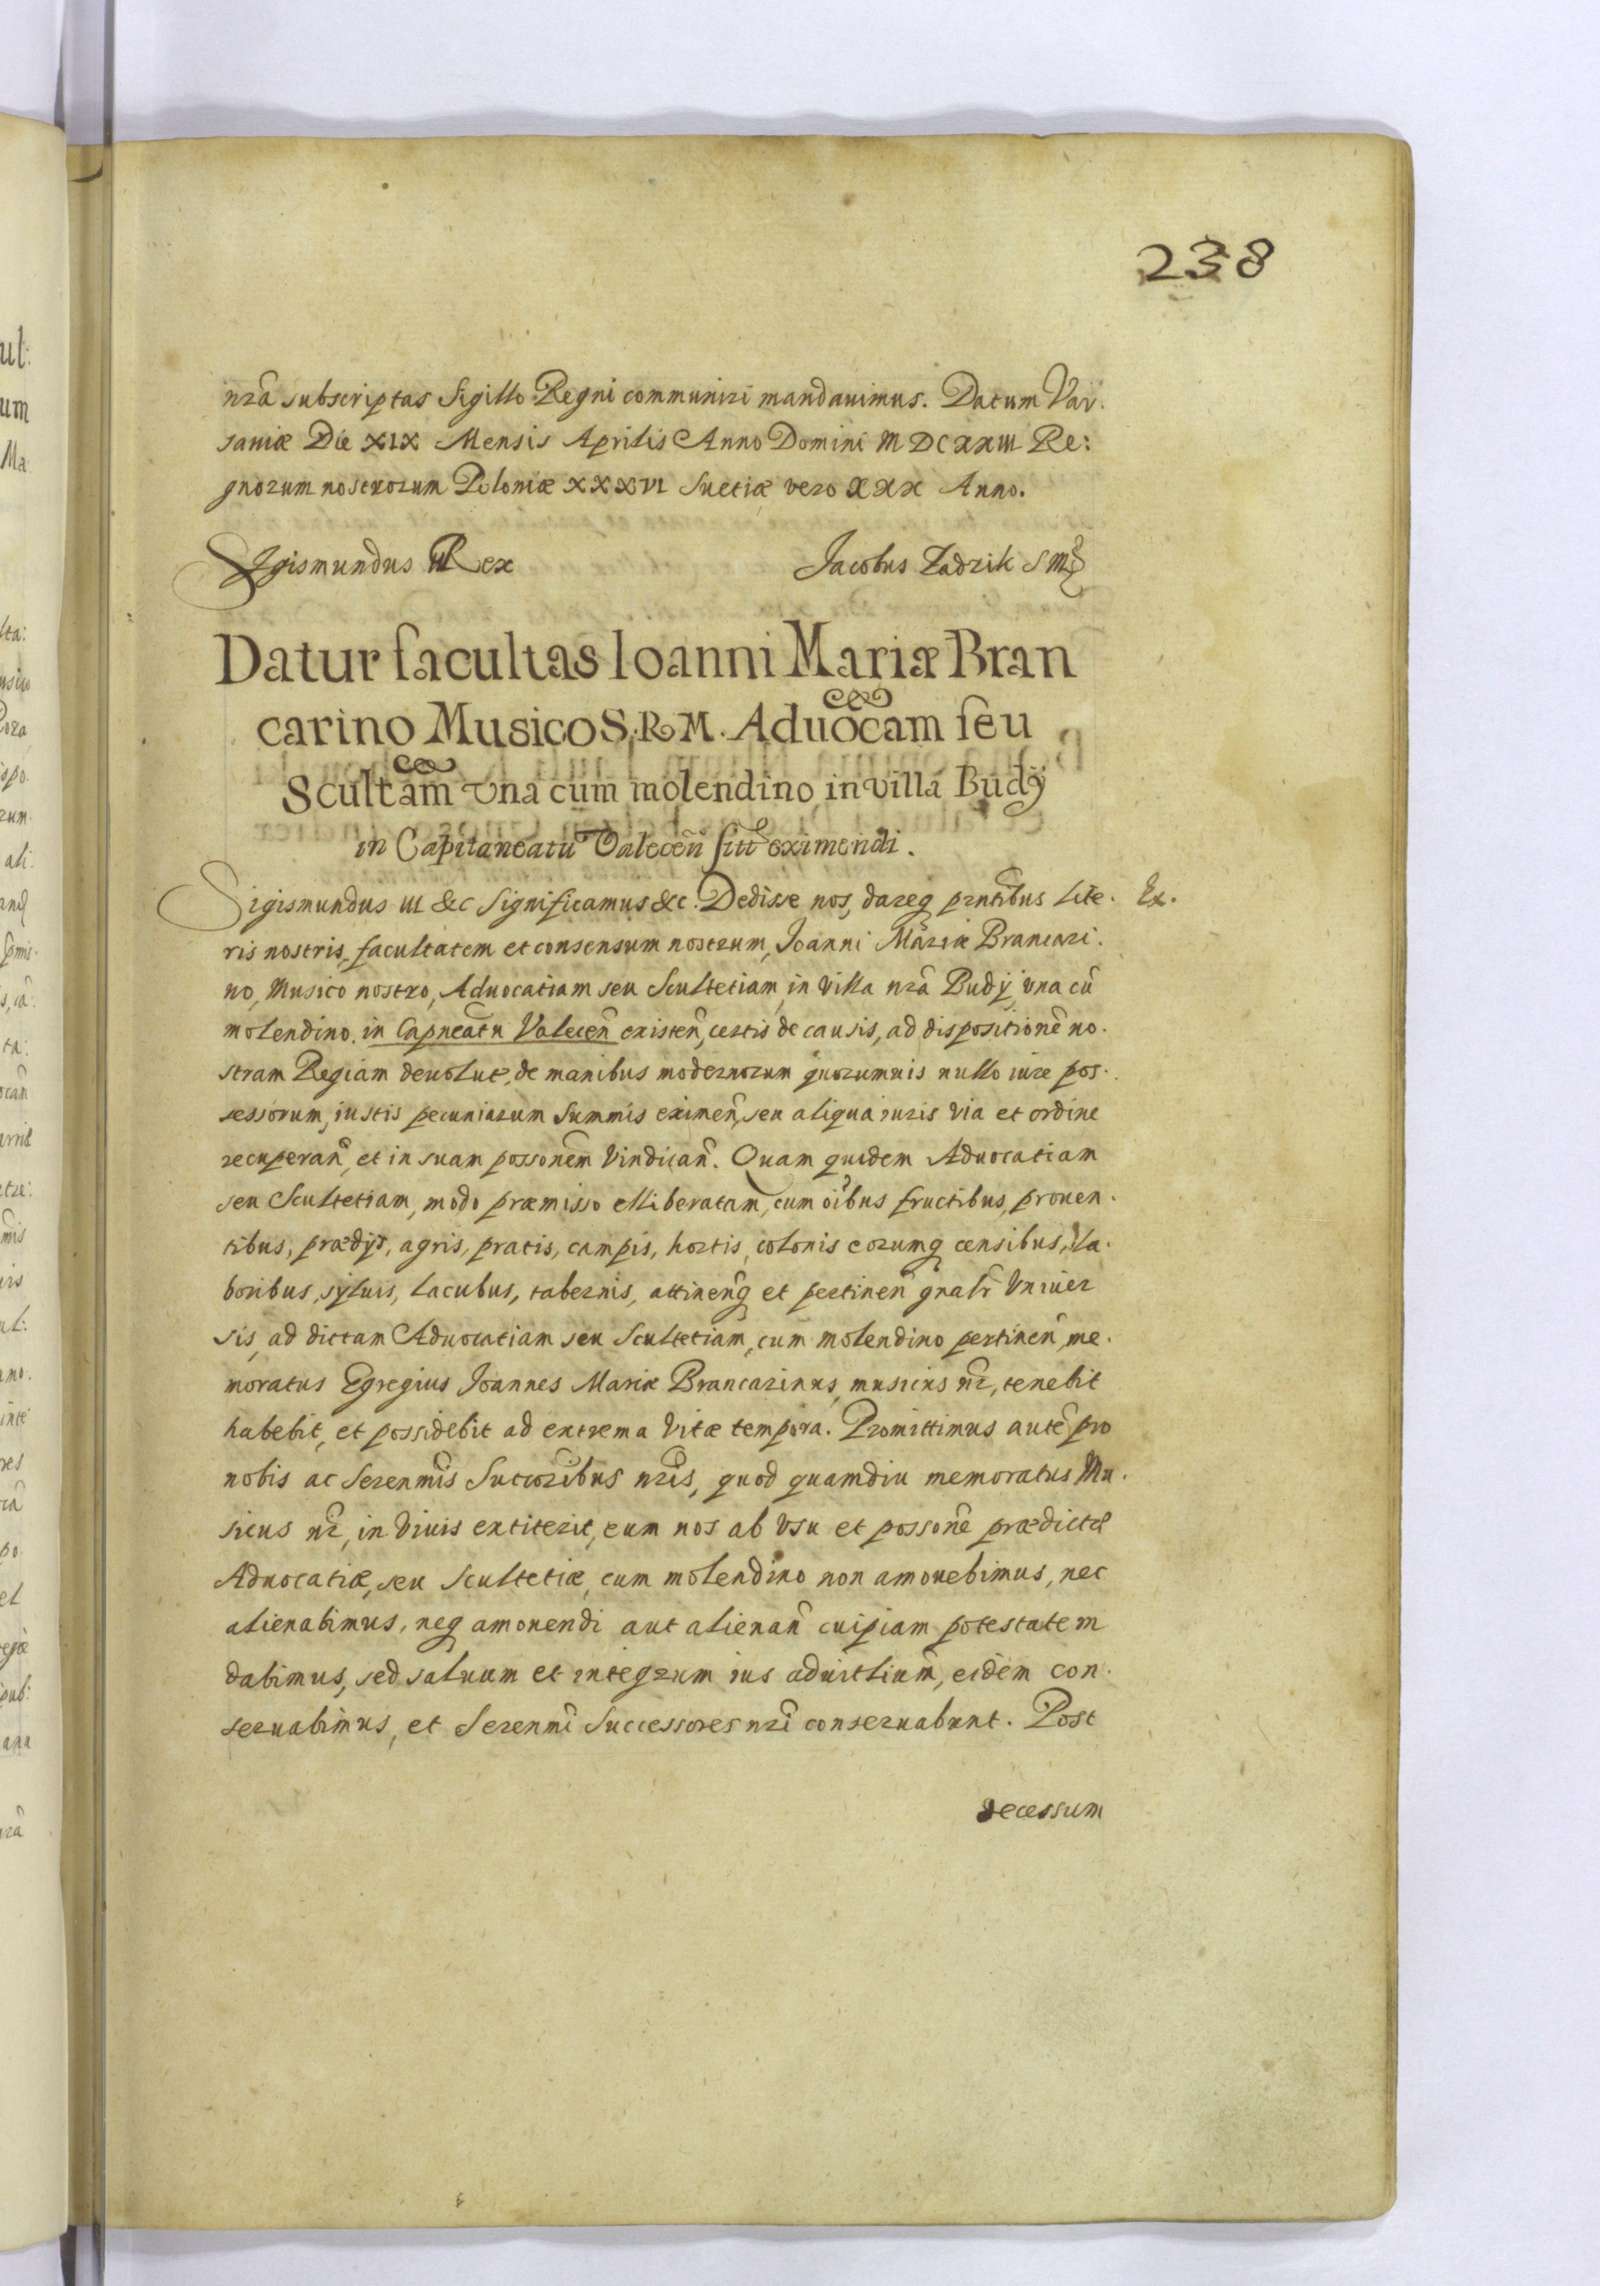 238
nrã subscriptas Sigillo Regni communiri mandauimus. Datum Var:
sauiæ Die XIX Mensis Aprilis Anno Domini MDCXXIII Re:
gnorum nostrorum Poloniæ XXXVI Suetiæ vero XXX Anno.
Sigismundus III Rex Jacobus Zadzik SM
Datur facultas Ioanni Mariæ Bran
carino Musico S.R.M. Aduocam seu
Scultam vna cum molendino in villa Budÿ
in Capitaneatu Valecen sitt eximendi.
Sigismundus III &c Significamus &c. Dedisse nos, dareq prntibus Lite. Ex.
ris nostris, facultatem et consensum nostrum, Joanni Mariæ Brancari.
no, Musico nostro, Aduocatiam seu Scultetiam, in Villa nrã Budÿ, vna cũ
molendino, in Capneatu Valecen existen, certis de causis, ad dispositionẽ no.
stram Regiam deuolut, de manibus modernorum quorumuis nullo iure pos.
sessorum, iustis pecuniarum Summis eximen, seu aliqua iuris Via et ordine
recuperan, et in suam possonem Vindican. Quam quidem Aduocatiam
seu Scultetiam, modo præmisso elliberatam, cum oibus fructibus, prouen.
tibus, prædijs, agris, pratis, campis, hortis, colonis eorumq censibus, la.
boribus, syluis, lacubus, tabernis, attinenq et pertinen gnalr Vniuer
sis, ad dictam Aduocatiam seu Scultetiam, cum molendino pertinen, me.
moratus Egregius Joannes Mariæ Brancarinus, musicus nr, tenebit
habebit, et possidebit ad extrema Vitæ tempora. Promittimus autẽ pro
nobis ac Serenmis Succoribus nris, quod quamdiu memoratus Mu.
sicus nr, in Viuis extiterit, eum nos ab Vsu et possone prædictæ
Aduocatiæ, seu Scultetiæ, cum molendino non amouebimus, nec
alienabimus, neq amouendi aut alienan cuipiam potestatem
dabimus, sed saluum et integrum ius aduitlium, eidem con.
seruabimus, et Serenmi Successores nri conseruabunt. Post
decessum